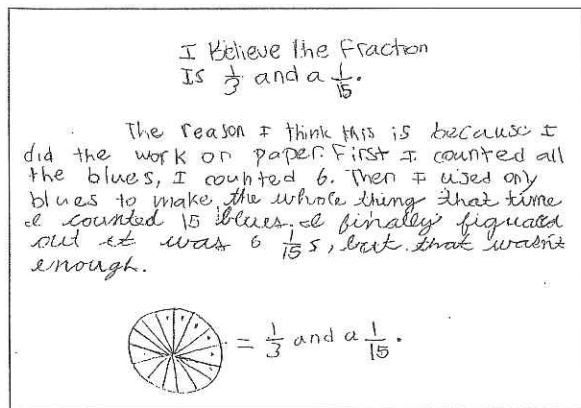 I Believe the Fraction
Is 1/3 and a 1/15.
The reason I think this is because I
did the work on paper. First I counted all
the blues, I counted 6. Then I used only
blues to make the whole thing that time
I counted 15 blues. I finally figuared
out it was 6 1/15 s, but that wasn't
enough.
= 1/3 and a 1/15.